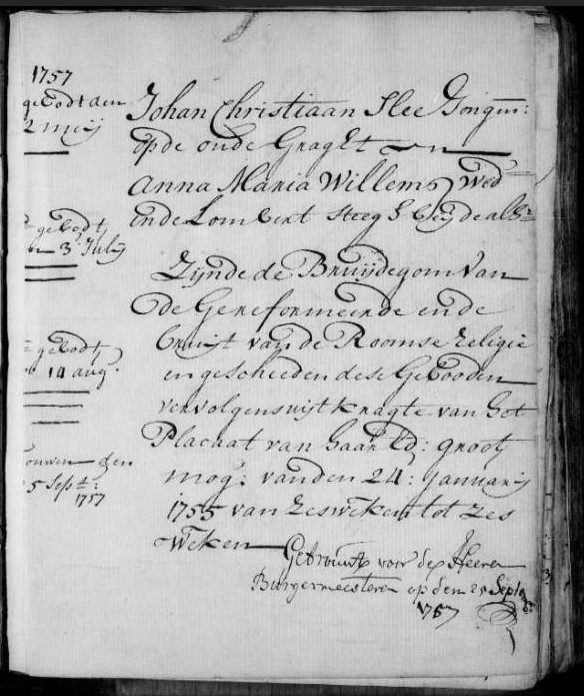 1757
gebodt den
2 meij
gebodt
3 Julij
gebodt
14 aug.
ouwen den
5 Sept:
1757
Johan Christiaan Slee Jongm:
op de oude Graght en
Anna Maria Willems Wed
in de Lombert steeg beijde alh:
Zijnde de Bruijdegom van
de Gereformeerde en de
bruijt van de Roomse Religie
en geschieden dese Gebooden
vervolgens uijt kragte van het
Placaat van haar Ed: groot
mog: van den 24: Januarij
1755 van zes weken tot zes
weken
Getrouwt voor de Heeren
Burgermeesteren op den 25 Septemb
1757